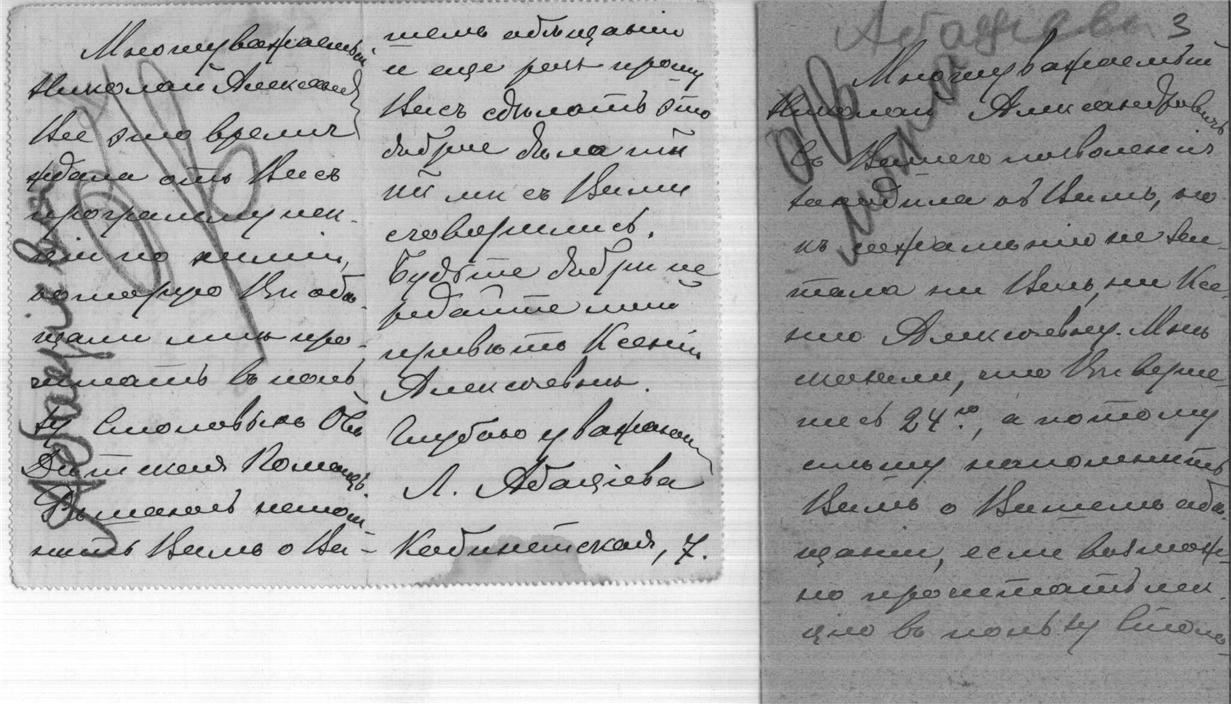 Многоуважаемый
Николай Александ
Все это время
ждала отъ Васъ
программу лек-
цій по химіи,
которую Вы обѣ-
щали мнѣ про-
читать въ поль-
зу Столовыхъ Общ
Дѣтская Помощь.
напом
нить Вамъ о Ва-
шемъ обѣщаніи
и еще разъ прошу
Васъ сдѣлать это
доброе дѣло
мы съ Вами
сговорились.
Будьте добры пе
редайте мой
привѣтъ Ксеніи
Алексѣевнѣ.
Глубоко уважающ
Л. Абаціева
Кабинетская, 7.
Абаціева
Абаціевы 3
Многоуважаемый
Николай Александровичъ
Съ Вашего позволенія
заходила къ Вамъ, но
къ сожалѣнію не зас
тала ни Васъ, ни Ксе
нію Алексѣевну. Мнѣ
сказали, что Вы верне
тесь 24го, а потому
спѣшу напомнить
Вамъ о Вашемъ обѣ
щаніи, если возмож-
но прочитать лек-
цію въ пользу Столо-